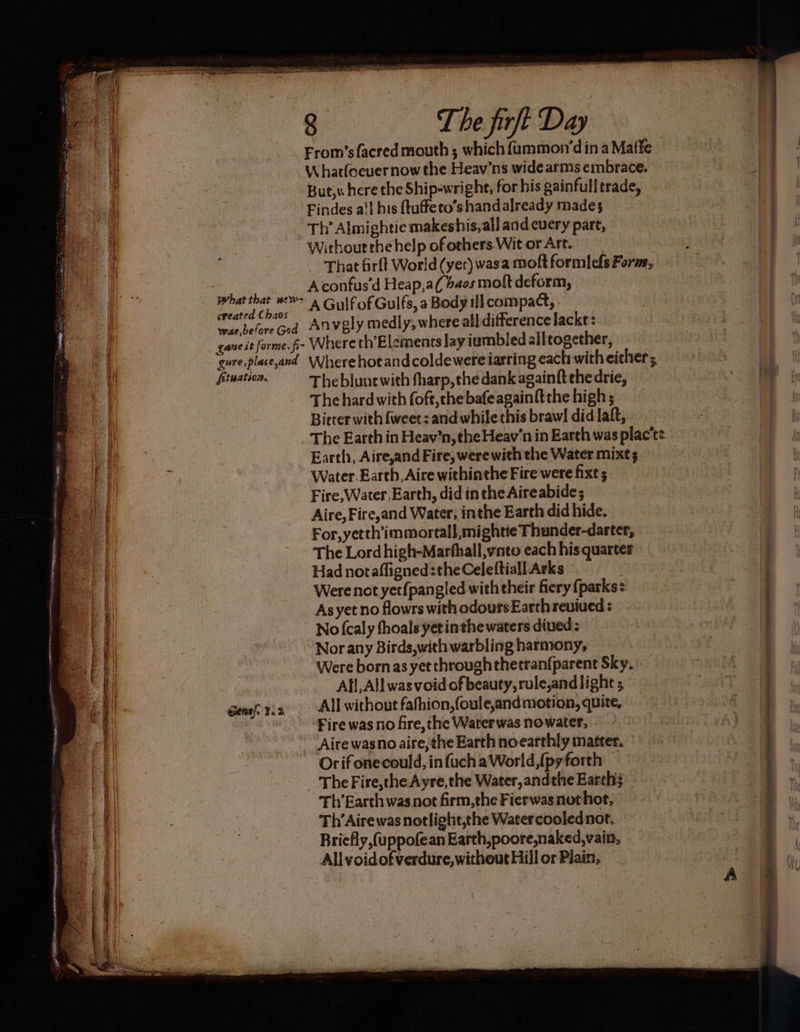 8 The first Day
From's sacred mouth; which summon'd in a Masse
Whatsoeuer now the Heav'ns wide arms embrace.
But, where the Ship-wright, for his gainfull trade,
Findes all his stuffe to's hand already made;
Th' Almightie makes his, all and euery part,
Without the help of others Wit or Art.
That first World (yet) was a most formless Form,
A confus'd Heap, a Chaos most deform,
What that new-created Chaos was, before God gaue it forme, figure, place, and situation.
A Gulf of Gulfs, a Body ill compact,
An vgly medly, where all difference lackt:
Where th'Elements lay iumbled all together,
Where hot and colde were iarring each with either;
The blunt with sharp, the dank against the drie,
The hard with soft, the base against the high;
Bitter with sweet: and while this brawl did last,
The Earth in Heav'n, the Heav'n in Earth was plac't:
Earth, Aire, and Fire, were with the Water mixt;
Water, Earth, Aire within the Fire were fixt;
Fire, Water, Earth, did in the Aire abide;
Aire, Fire, and Water, in the Earth did hide.
For, yet th'immortall, mightie Thunder-darter,
The Lord high-Marshall, vnto each his quarter
Had not assigned: the Celestiall Arks
Were not yet spangled with their fiery sparks:
As yet no flowrs with odours Earth reuiued:
No scaly shoals yet in the waters diued:
Nor any Birds, with warbling harmony,
Were born as yet through the transparent Sky.
All, All was void of beauty, rule, and light;
Genes. 1.2
All without fashion, soule, and motion, quite,
Fire was no fire, the Water was no water,
Aire was no aire, the Earth no earthly matter.
Or if one could, in such a World, spy forth
The Fire, the Ayre, the Water, and the Earth;
Th'Earth was not firm, the Fier was not hot,
Th'Aire was not light, the Water cooled not.
Briefly, suppose an Earth, poore, naked, vain,
All void of verdure, without Hill or Plain,
A